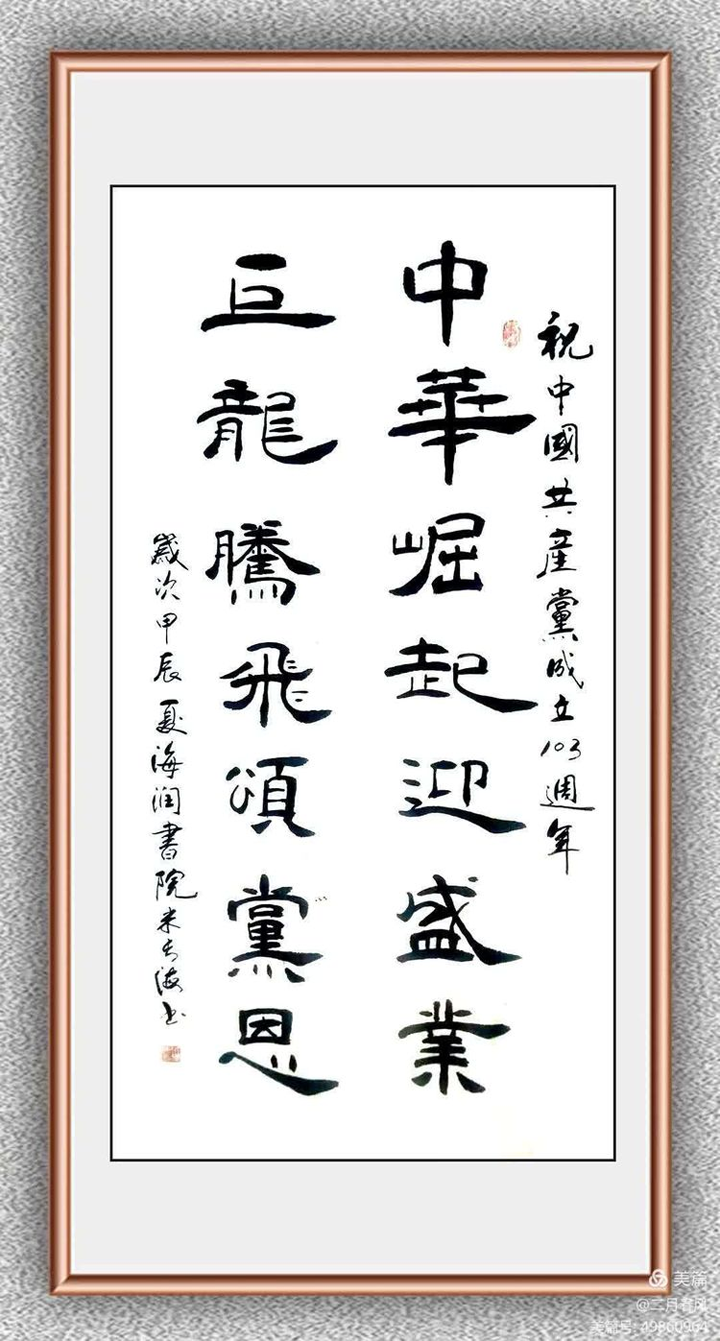 祝中國共產黨成立103週年
中華崛起迎盛業
巨龍騰飛頌黨恩
歲次甲辰夏海润書院米长海书
美篇
@二月春风
美篇号:49860964